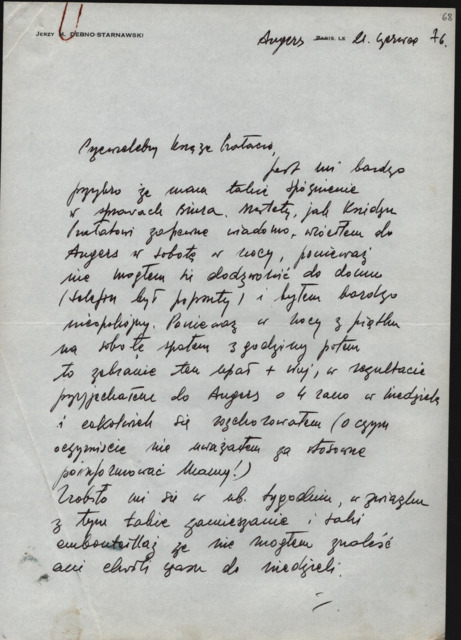 68
JERZY A. DĘBNO-STARNAWSKI
Angers PARIS, LE 21. Czerwca 76.
Przewielebny Księże Prałacie,
Jest mi bardzo
przykro że mam takie spóźnienie
w sprawach Biura. Niestety, jak Księdzu
Prałatowi zapewne wiadomo, wróciłem do
Angers w sobotę w nocy, ponieważ
nie mogłem się dodzwonić do domu
(telefon był popsuty) i byłem bardzo
niespokojny. Ponieważ w nocy z piątku
na sobotę spałem 3 godziny potem
to zebranie ten upał + wiej, w rezultacie
przyjechałem do Angers o 4 rano w niedzielę
i całkowicie się rozchorowałem (o czym
oczywiście nie uważałem za stosowne
poinformować Mamy!)
Zrobiło mi się w ub. tygodniu, w związku
z tym takie zamieszanie i taki
embouteillaż że nie mogłem znaleźć
ani chwili czasu do niedzieli.